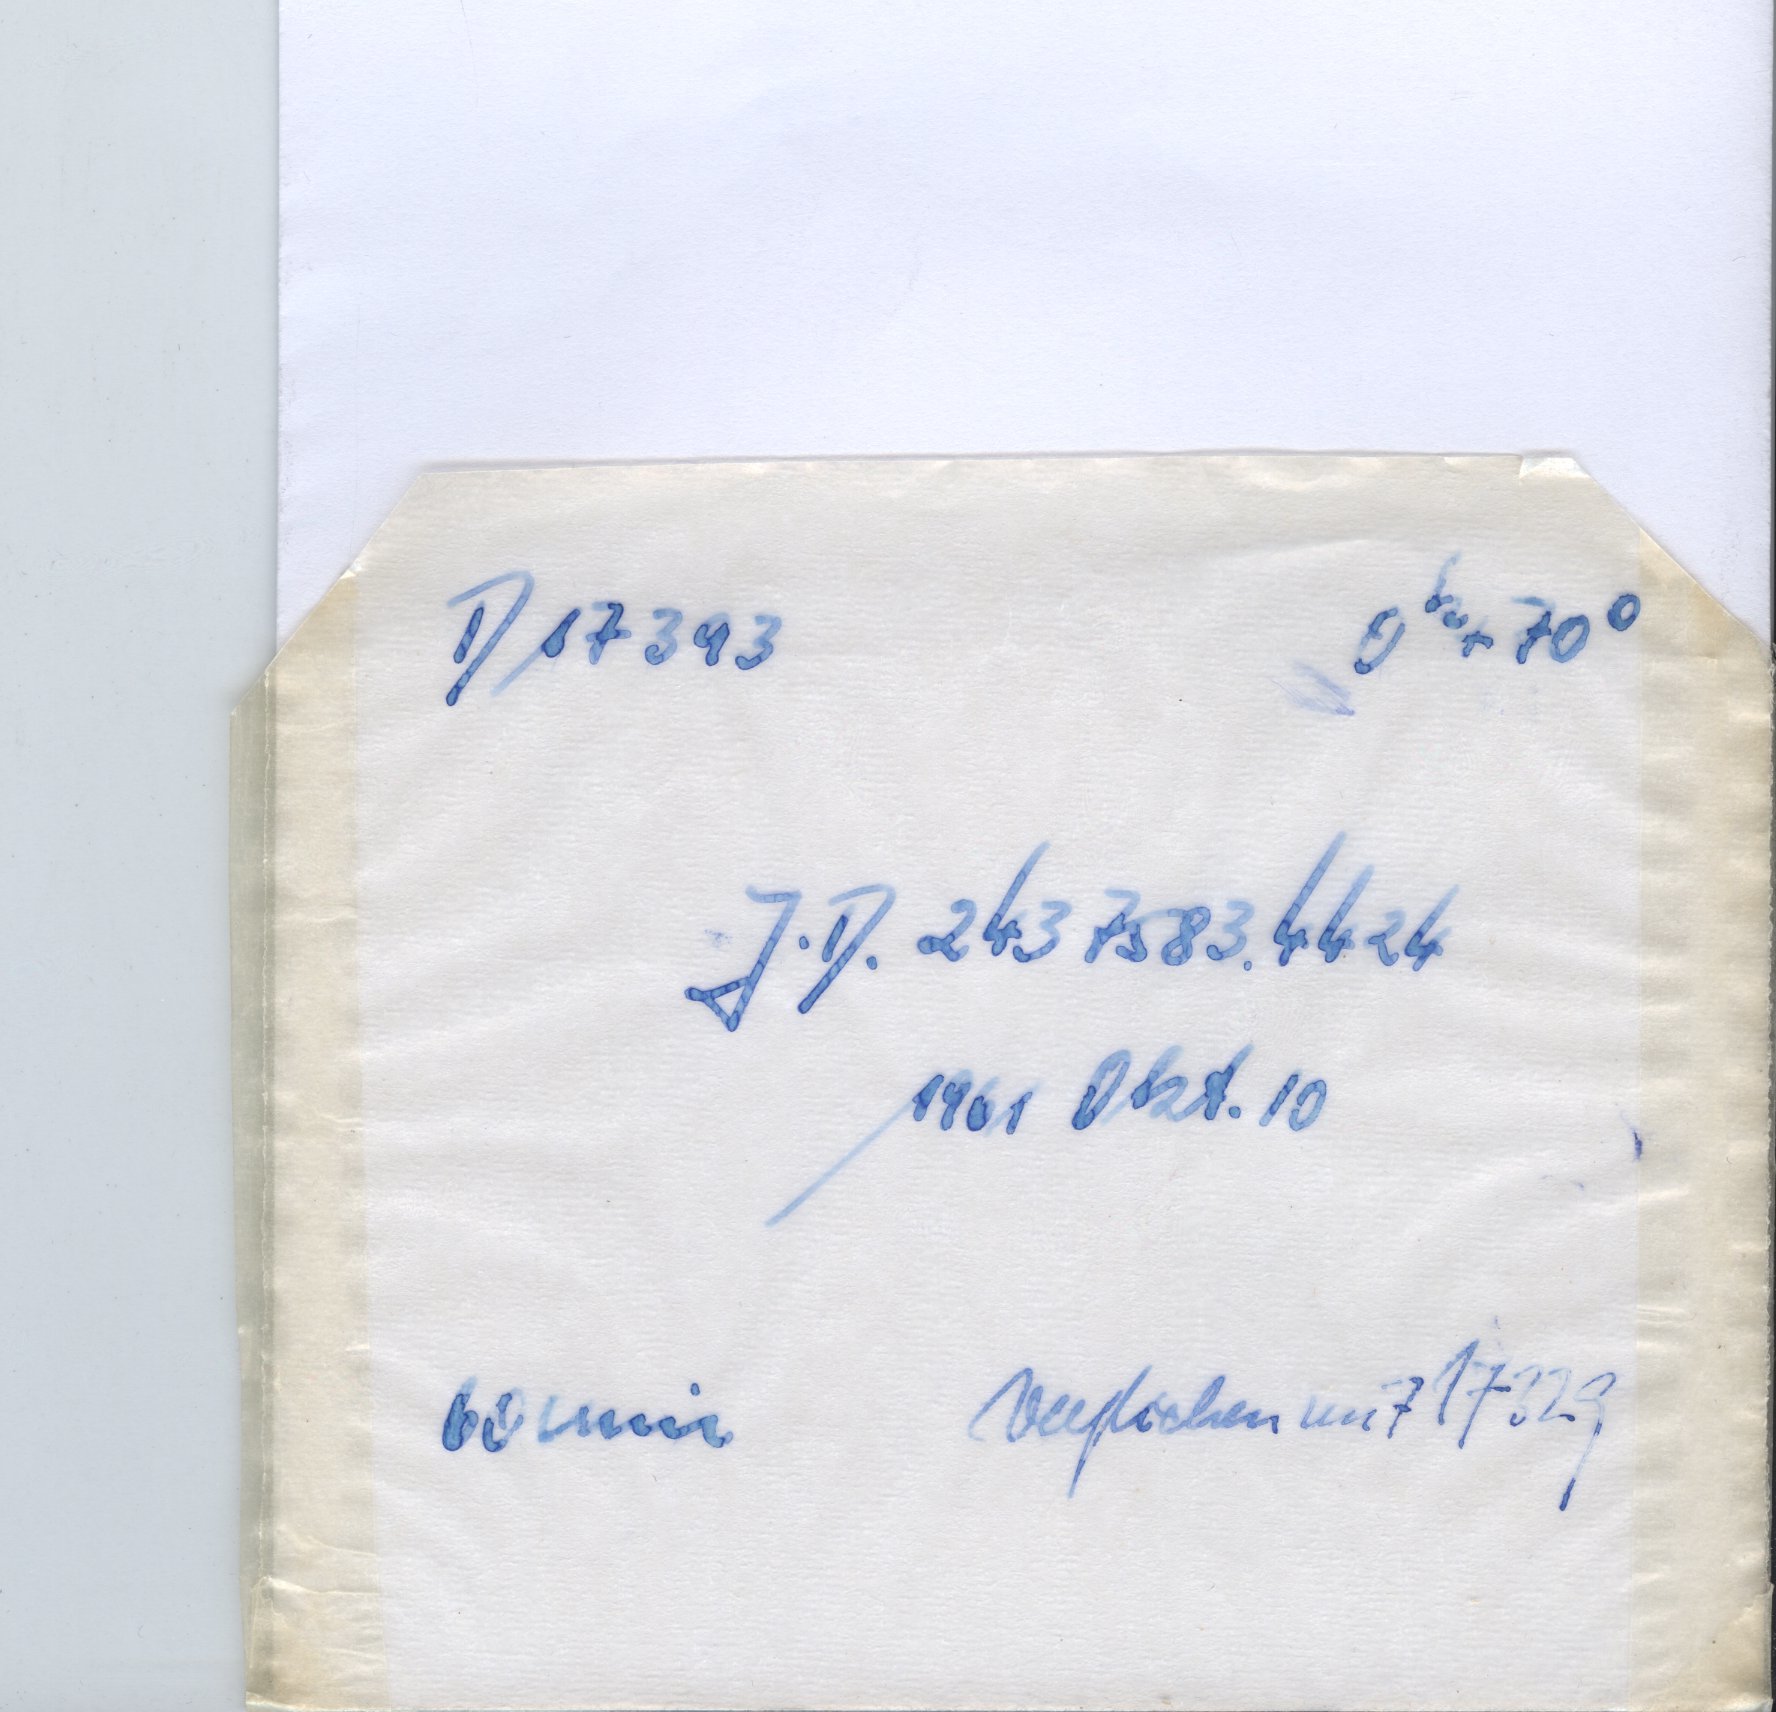 D 17393 0ʰ + 70°
J.D. 2437583.4424
1961 Okt. 10
60 min verglichen mit 17329